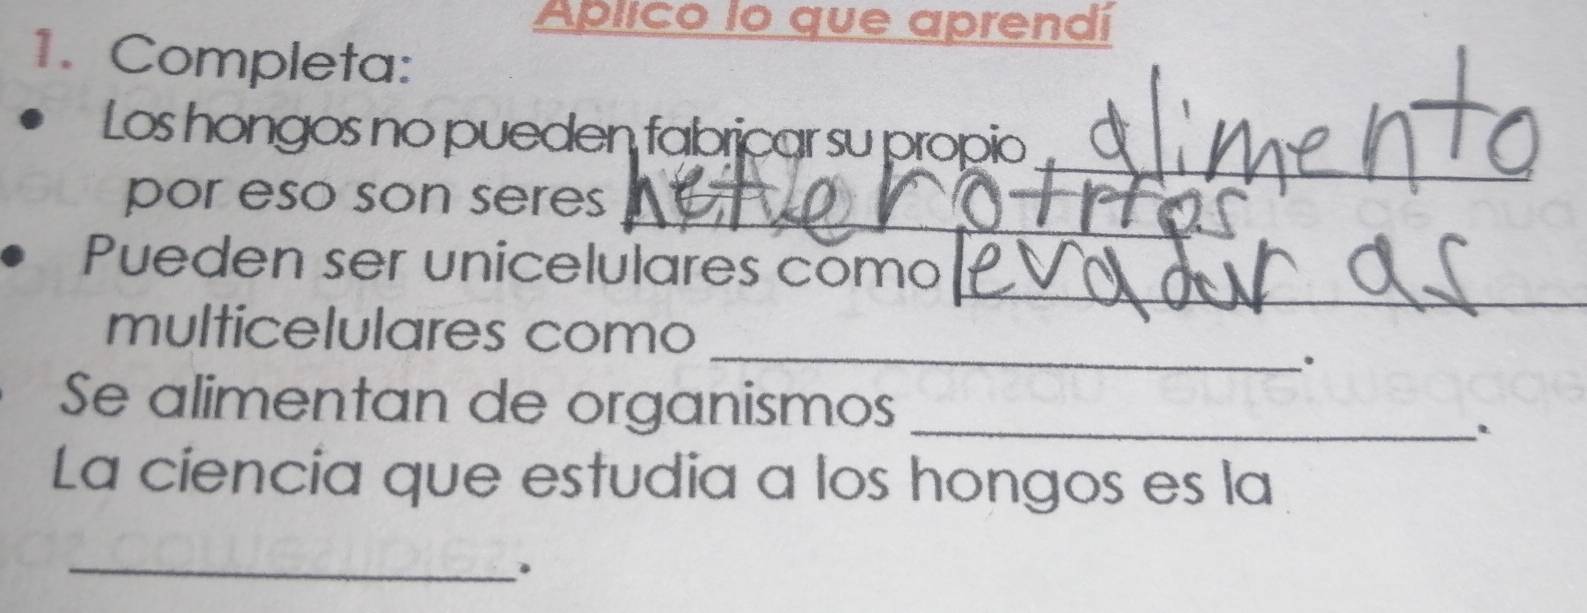 Aplico lo que aprendí
1. Completa:
• Los hongos no pueden fabricar su propio alimento
por eso son seres heterotrfos
• Pueden ser unicelulares como levaduras
multicelulares como ____.
Se alimentan de organismos ____.
La ciencia que estudia a los hongos es la
____.